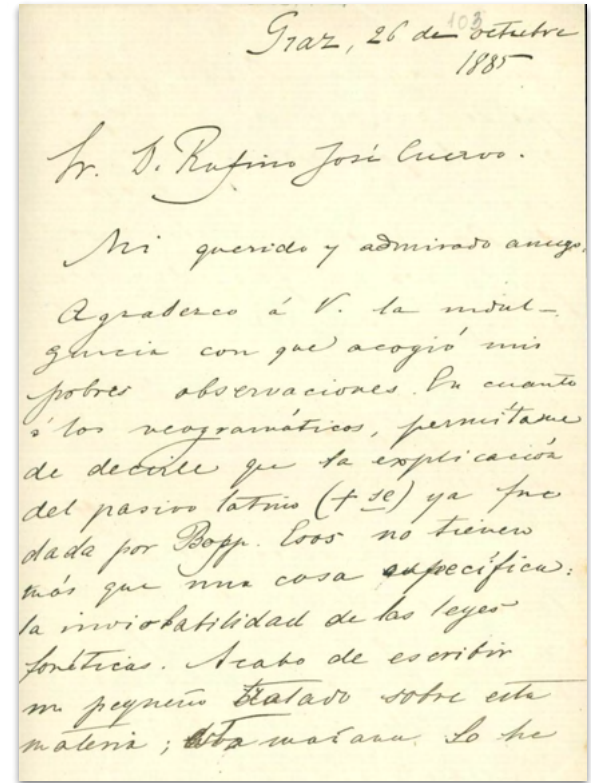 103
Graz, 26 de octubre
1885
Sr. D. Rufino José Cuervo.
Mi querido y admirado amigo,
Agradezco á V. la indul-
gencia con que acogió mis
pobres observaciones. En cuanto
á los neogramáticos, permítame
de decirle que la explicación
del pasivo latino (+ se) ya fue
dada por Bopp. Esos no tienen
más que una cosa específica:
la inviolabilidad de las leyes
fonéticas. Acabo de escribir
un pequeño tratado sobre esta
materia; esta mañana lo he